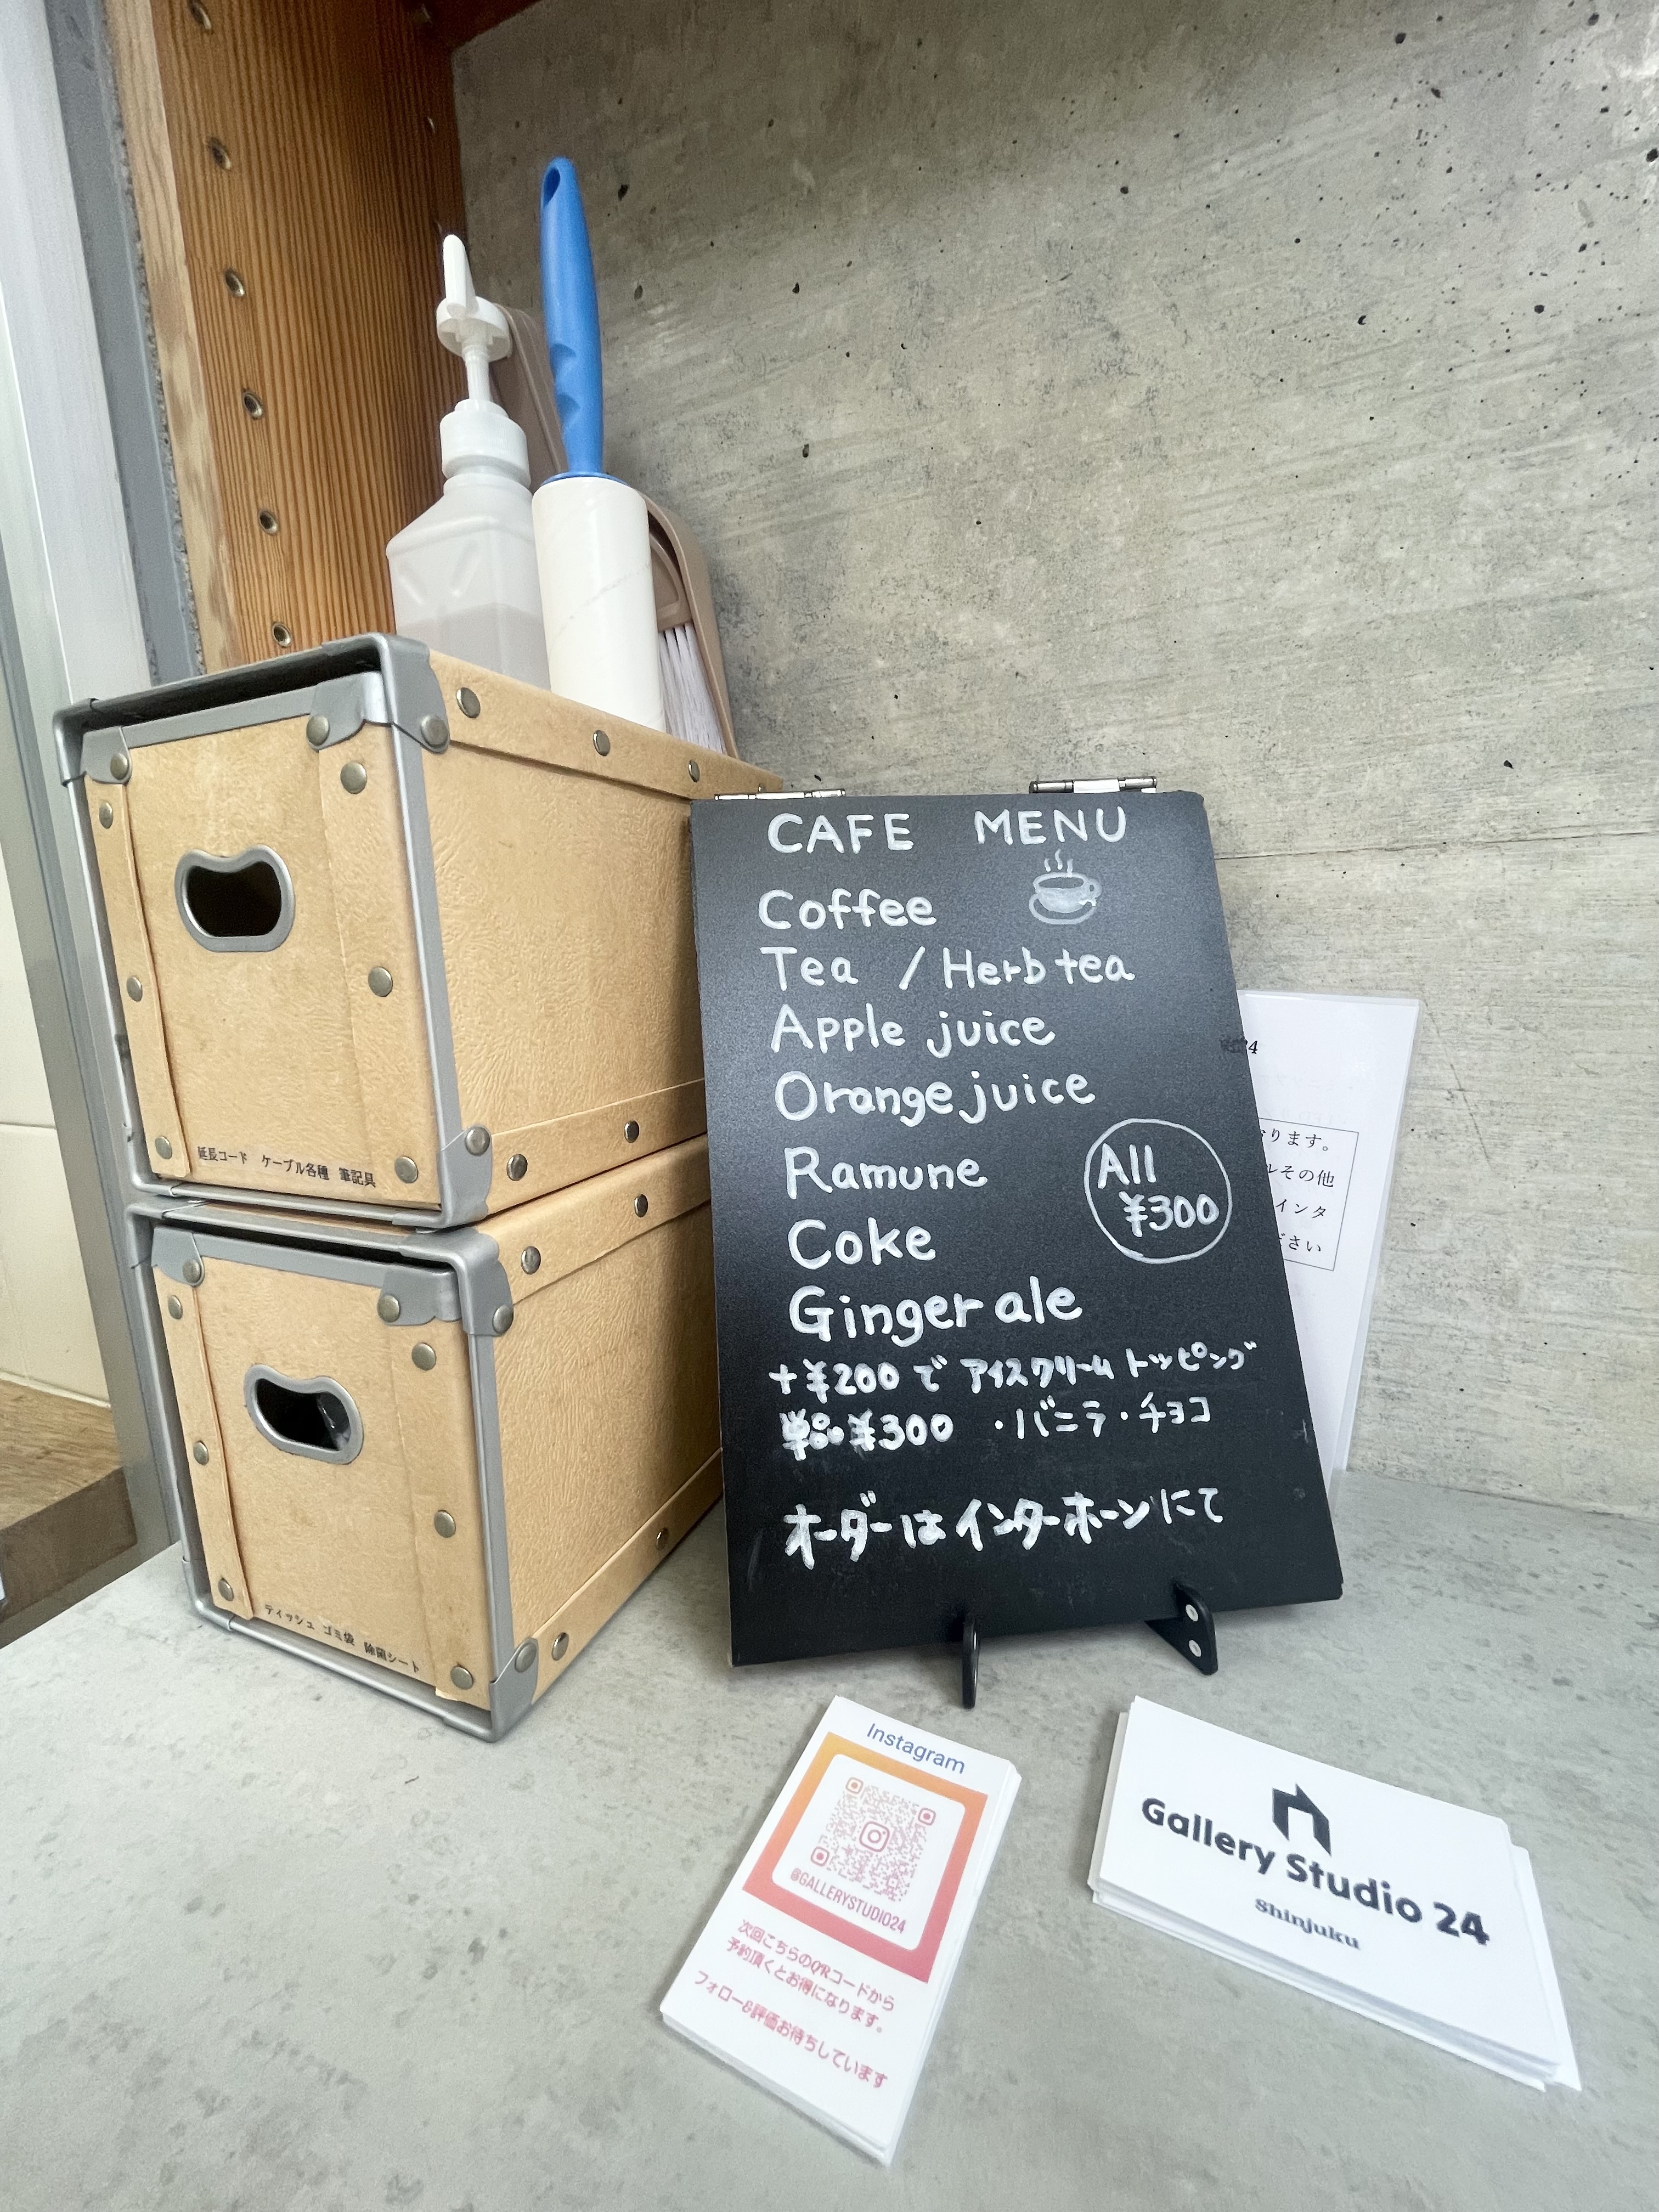 CAFE MENU
Coffee
Tea / Herb tea
Apple juice
Orange juice
Ramune
All
¥300
Coke
Ginger ale
+¥200で アイスクリーム トッピング
単品¥300 ・バニラ・チョコ
オーダーは インターホーン にて
延長コード ケーブル各種 筆記具
ティッシュ ゴミ袋 除菌シート
ります。
その他
インタ
ださい
Instagram
@GALLERYSTUDIO24
次回こちらのQRコードから
予約頂くとお得になります。
フォロー&評価お待ちしています
Gallery Studio 24
Shinjuku